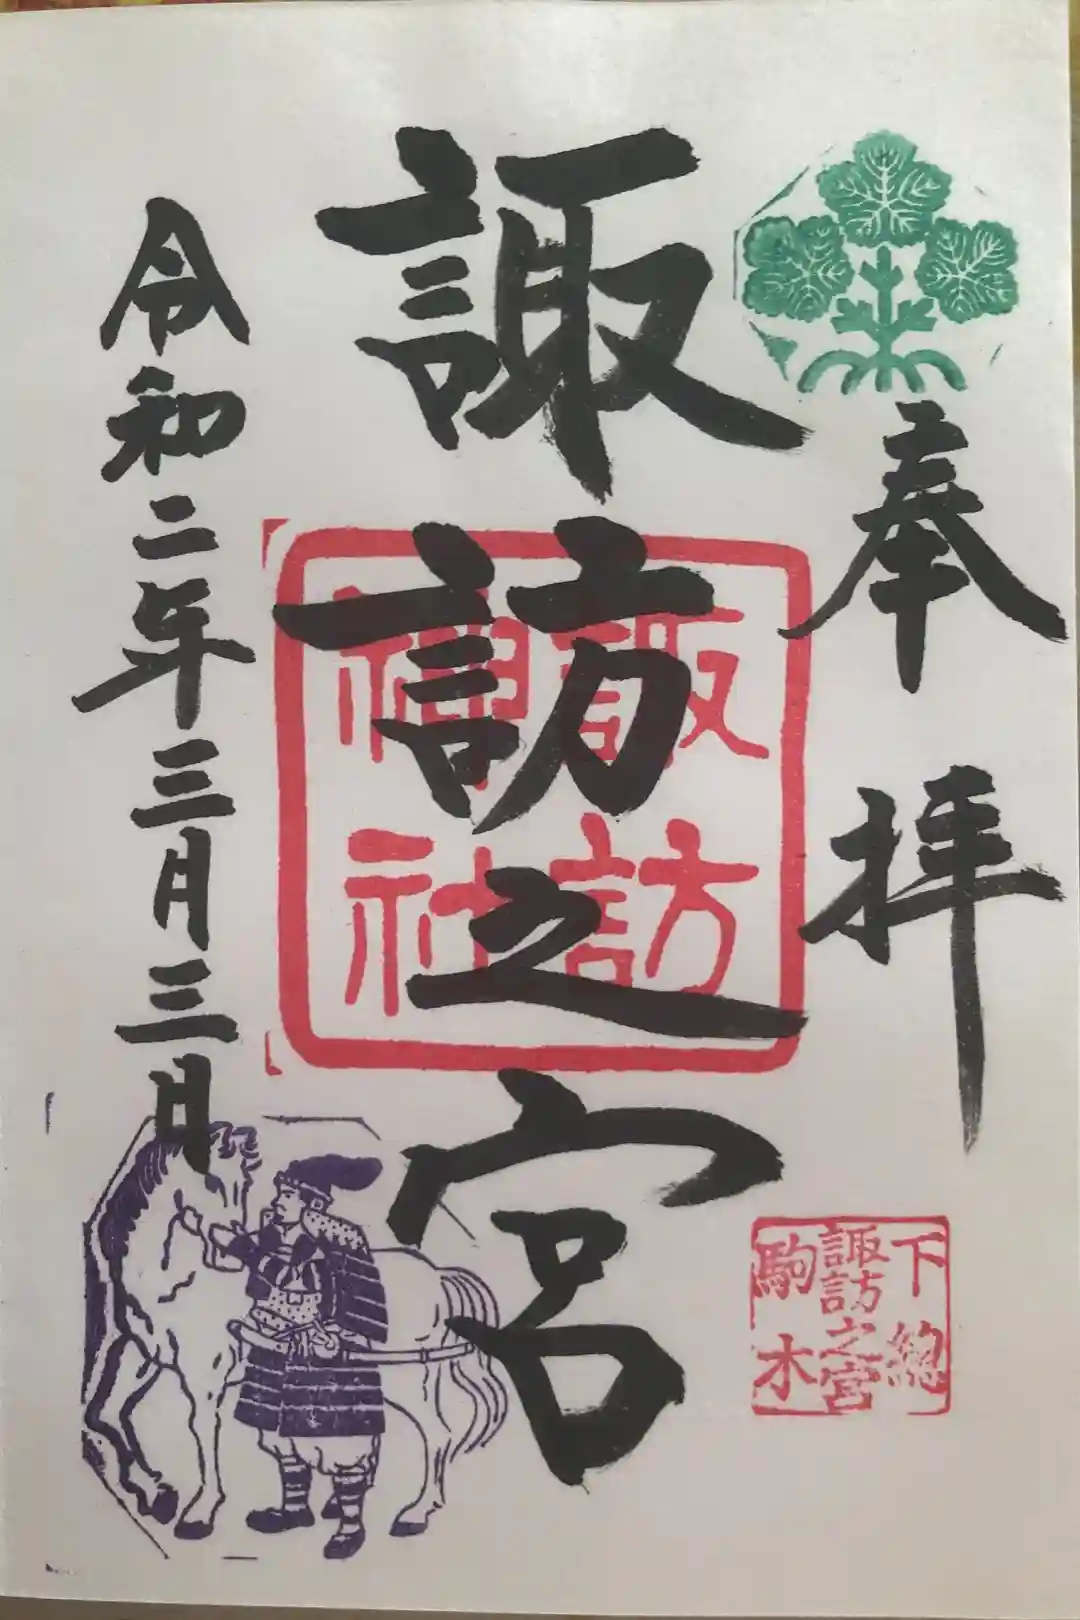 奉拝
諏訪之宮
諏訪
神社
令和二年三月三日
下總
諏訪之宮
駒木